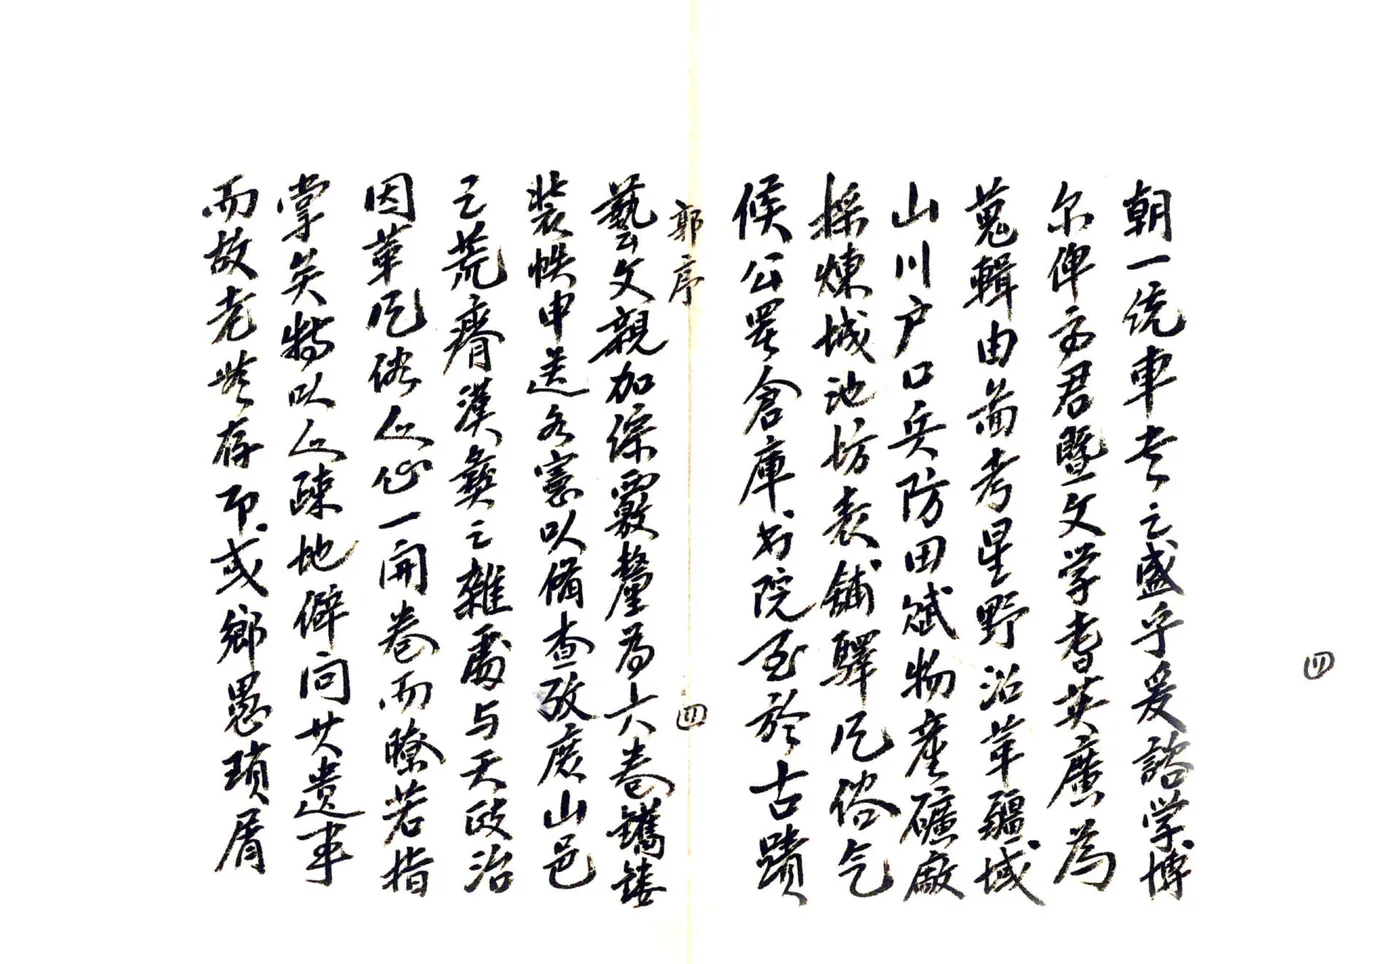 朝一统車书之盛乎爰諮学博
尔俾方君暨文学耆英廣為
蒐輯由啚考星野沿革疆域
山川户口兵防田赋物産礦廠
採煉城池坊表舖驛风俗气
候公署倉庫书院至於古蹟
四
郭序
藝文親加综覈釐為六卷鐫镂
装帙申送各憲以備查攷庶山邑
之荒瘠漢彝之雜處与夫政治
因革风俗人心一開卷而瞭若指
掌矣特以人疎地僻间其遺事
而故老犹存耶或鄉愚瑣屑
四